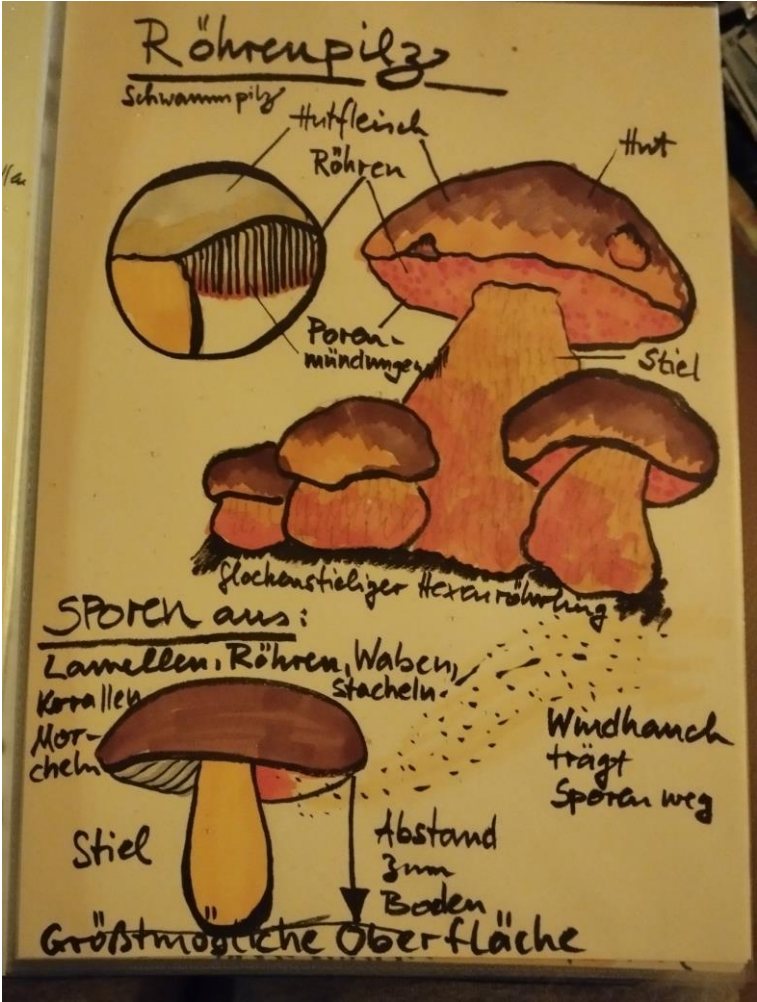 Röhrenpilz
Schwammpilz
Hutfleisch
Röhren
Hut
Poren-
mündungen
Stiel
flockenstieliger Hexenröhrling
Sporen aus:
Lamellen, Röhren, Waben,
Stacheln
Korallen
Mor-
cheln
Windhauch
trägt
Sporen weg
Stiel
Abstand
zum
Boden
Größtmögliche Oberfläche